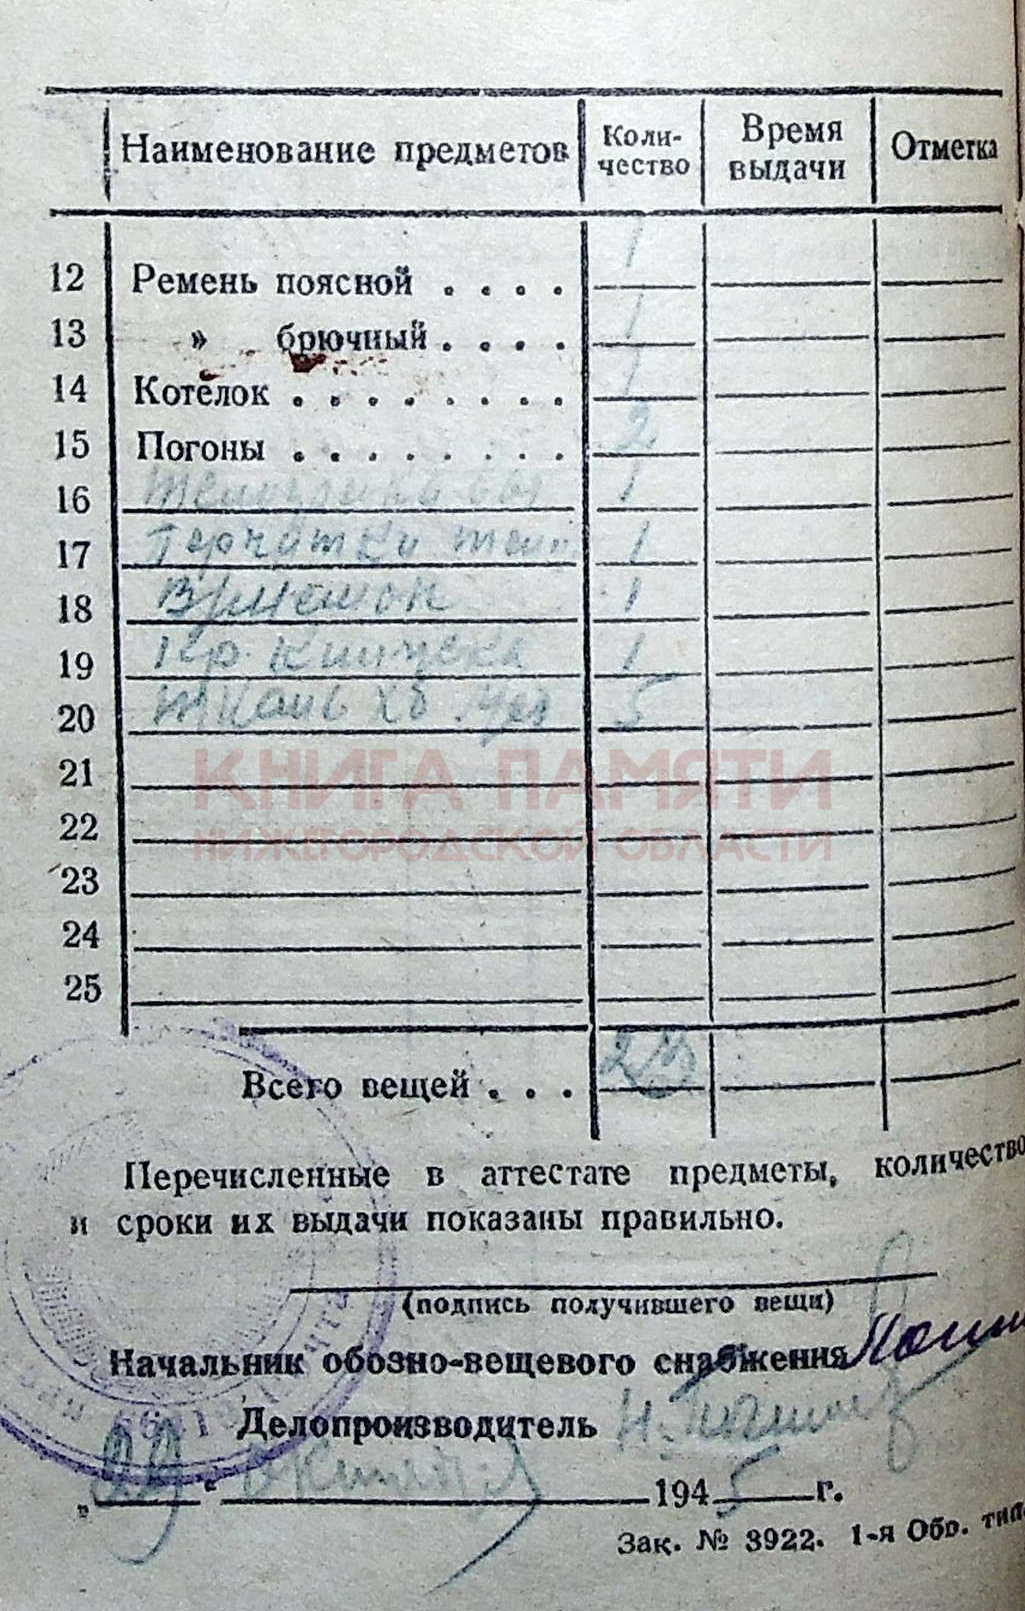 Наименование предметов Коли-чество Время выдачи Отметка
12 Ремень поясной . . . . 1
13 » брючный . . . . 1
14 Котелок . . . . . . . . 1
15 Погоны . . . . . . . . 2
16 1
17 Перчатки теп 1
18 В/мешок 1
19 1
20 Ткань хб 5
КНИГА ПАМЯТИ
21
22
НИЖЕГОРОДСКОЙ ОБЛАСТИ
23
24
25
Всего вещей . . . 23
Перечисленные в аттестате предметы, количество
и сроки их выдачи показаны правильно.
(подпись получившего вещи)
Начальник обозно-вещевого снабжения
Делопроизводитель
„29“ октября 1945 г.
Зак. № 3922. 1-я Обр. тип.